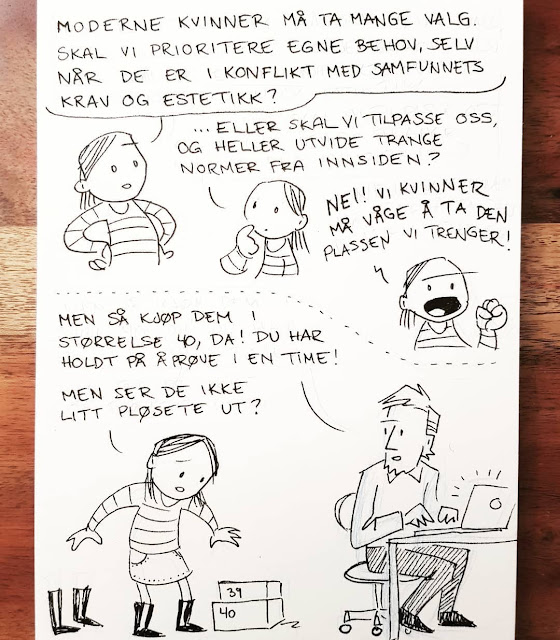 MODERNE KVINNER MÅ TA MANGE VALG.
SKAL VI PRIORITERE EGNE BEHOV, SELV
NÅR DE ER I KONFLIKT MED SAMFUNNETS
KRAV OG ESTETIKK?
...ELLER SKAL VI TILPASSE OSS,
OG HELLER UTVIDE TRANGE
NORMER FRA INNSIDEN?
NEI! VI KVINNER
MÅ VÅGE Å TA DEN
PLASSEN VI TRENGER!
MEN SÅ KJØP DEM I
STØRRELSE 40, DA! DU HAR
HOLDT PÅ Å PRØVE I EN TIME!
MEN SER DE IKKE
LITT PLØSETE UT?
39
40